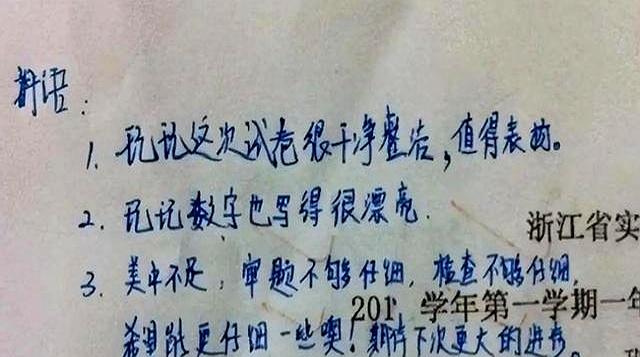 评语：
1. 玩玩这次试卷很干净整洁，值得表扬。
2. 玩玩数字也写得很漂亮.
浙江省实
3. 美中不足，审题不够仔细，检查不够仔细，
201 学年第一学期一年
希望能更仔细一些噢！期待下次更大的进步。